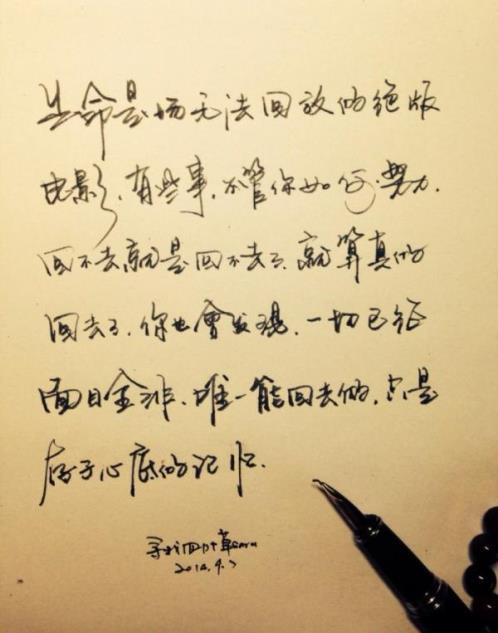 生命是场无法回放的绝版
电影，有些事，不管你如何努力，
回不去就是回不去了，就算真的
回去了，你也會发现，一切已经
面目全非，唯一能回去的，只是
存于心底的记忆.
寻找四叶草
2014.9.7